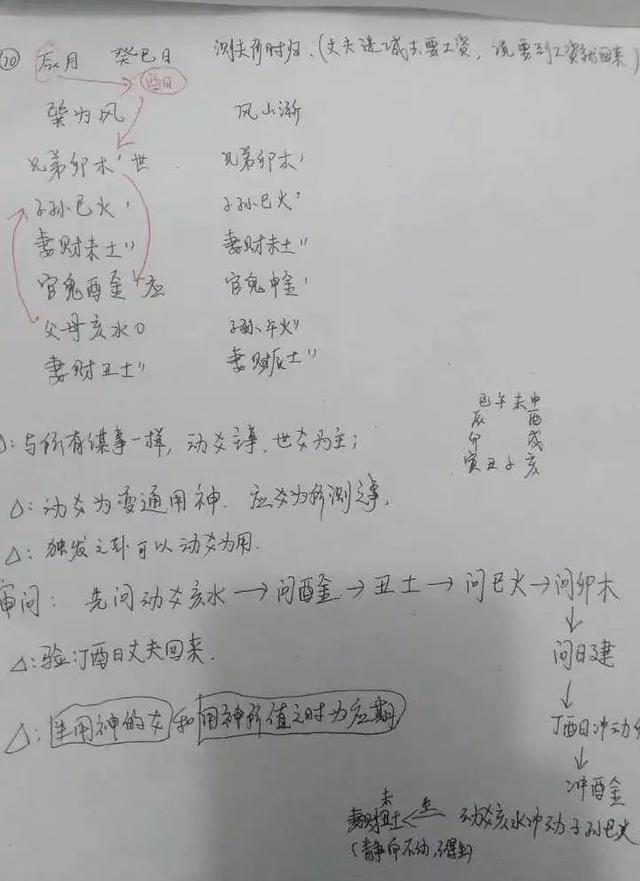 ⑩ 辰月 癸巳日 测夫何时归:(丈夫进城去要工资,说要到工资就回来)
临日
巽为风 风山渐
兄弟卯木' 世 兄弟卯木'
子孙巳火' 子孙巳火'
妻财未土'' 妻财未土''
官鬼酉金' 应 官鬼申金'
父母亥水O 子孙午火''
妻财丑土'' 妻财辰土''
巳午未申
辰 酉
卯 戌
寅丑子亥
△:与所有谋事一样,动爻主事,世爻为主;
△:动爻为变通用神.应爻为所测之事.
△:独发之卦可以动爻为用.
审问:先问动爻亥水→问酉金→丑土→问巳火→问卯木
↓
问日建
↓
△:验:丁酉日丈夫回来.
丁酉日冲动
↓
冲酉金
△:生用神的爻和用神所值之时为应期
未
妻财丑土 ← 生 动爻亥水冲动子孙巳火
(静而不动,得生)